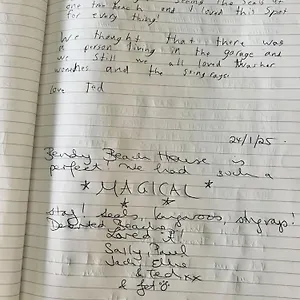 seeing the seals at
one the beach and I loved this spot
for every thing!
We thought that there was
a person living in the garage and
we still we all loved Washer
woodies and the stingrays
love Ted
24/1/25.
Bendy Beach House is
perfect! We had such a
* MAGICAL *
stay! Seals, kangaroos, stingrays!
Deserted Beaches
Loved it!
Sally, Paul
Judy, Ellie
& Ted xx
&